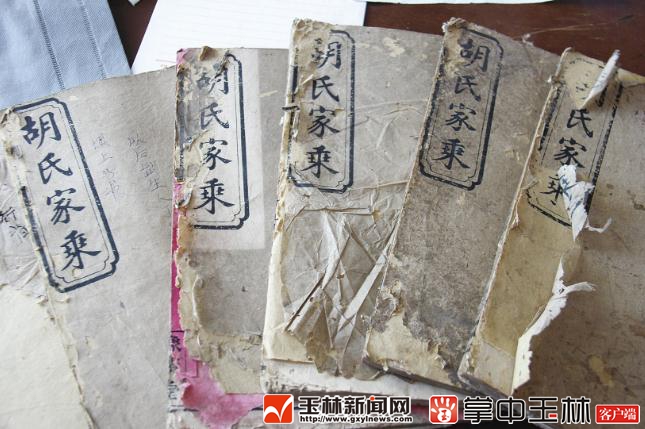 胡氏家乘
胡氏家乘
胡氏家乘
胡氏家乘
胡氏家乘
玉林新闻网
www.gxylnews.com
掌中玉林
客户端